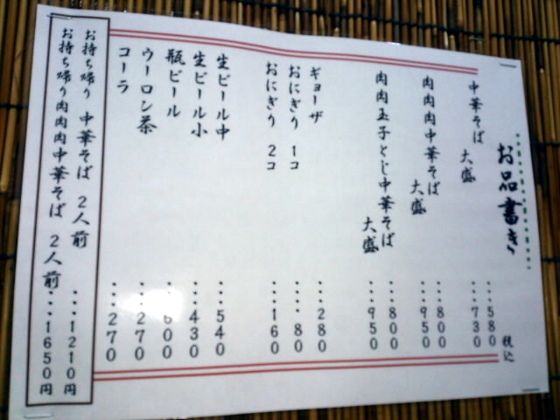 お品書き
税込
中華そば ・・・580
大盛 ・・・730
肉肉肉中華そば ・・・800
大盛 ・・・950
肉肉玉子とじ中華そば ・・・800
大盛 ・・・950
ギョーザ ・・・280
おにぎり 1コ ・・・・80
おにぎり 2コ ・・・160
生ビール中 ・・・540
生ビール小 ・・・430
瓶ビール ・・・600
ウーロン茶 ・・・270
コーラ ・・・270
お持ち帰り 中華そば 2人前 ・・・1210円
お持ち帰り肉肉肉中華そば 2人前・・・1650円